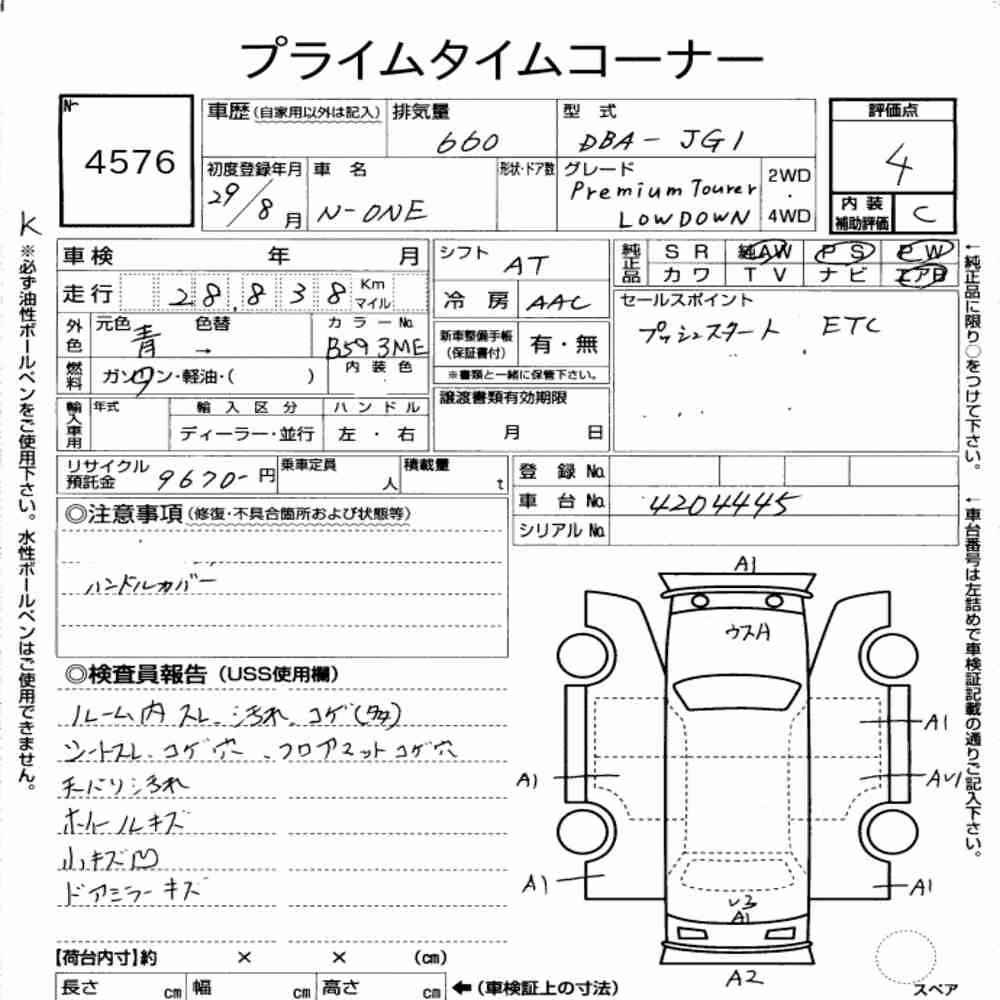 プライムタイムコーナー
No.
4576
車歴(自家用以外は記入)
排気量
660
型 式
DBA-JG1
評価点
4
初度登録年月
29/8月
車 名
N-ONE
形状・ドア数
グレード
Premium Tourer
LOWDOWN
2WD
・
4WD
内装
補助評価
C
K
※必ず油性ボールペンをご使用下さい。水性ボールペンはご使用できません。
車検 年 月
走行 28,838 Km
マイル
外色
元色 色替
青 →
カラーNo.
B593ME
燃料
ガソリン・軽油・( )
内装色
輸入車用
年式
輸入区分
ディーラー・並行
ハンドル
左・右
シフト
AT
冷房
AAC
新車整備手帳
(保証書付)
有・無
※書類と一緒に保管下さい。
譲渡書類有効期限
月 日
純正品
SR 純AW PS PW
カワ TV ナビ エアB
セールスポイント
プッシュスタート ETC
←純正品に限り○をつけて下さい。
リサイクル
預託金
9670-円
乗車定員
人
積載量
t
登録No.
車台No.
4204445
シリアルNo.
←車台番号は左詰めで車検証記載の通りご記入下さい。
◎注意事項(修復・不具合箇所および状態等)
ハンドルカバー
◎検査員報告(USS使用欄)
ルーム内スレ、汚れ、コゲ(多)
シートスレ、コゲ穴、フロアマットコゲ穴
天バリ汚れ
ホイールキズ
小キズ凹
ドアミラーキズ
A1
ウスA
A1
A1
AU1
A1
A1
U3
A1
A2
スペア
【荷台内寸】約 × × (cm)
長さ cm
幅 cm
高さ cm
←(車検証上の寸法)